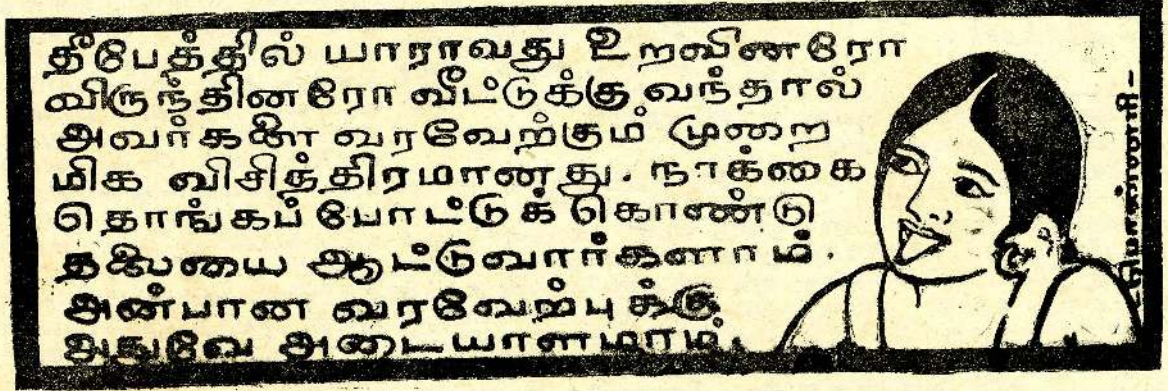 தீபேத்தில் யாராவது உறவினரோ
விருந்தினரோ வீட்டுக்கு வந்தால்
அவர்களை வரவேற்கும் முறை
மிக விசித்திரமானது. நாக்கை
தொங்கப் போட்டுக் கொண்டு
தலையை ஆட்டுவார்களாம்.
அன்பான வரவேற்புக்கு
அதுவே அடையாளமாம்.